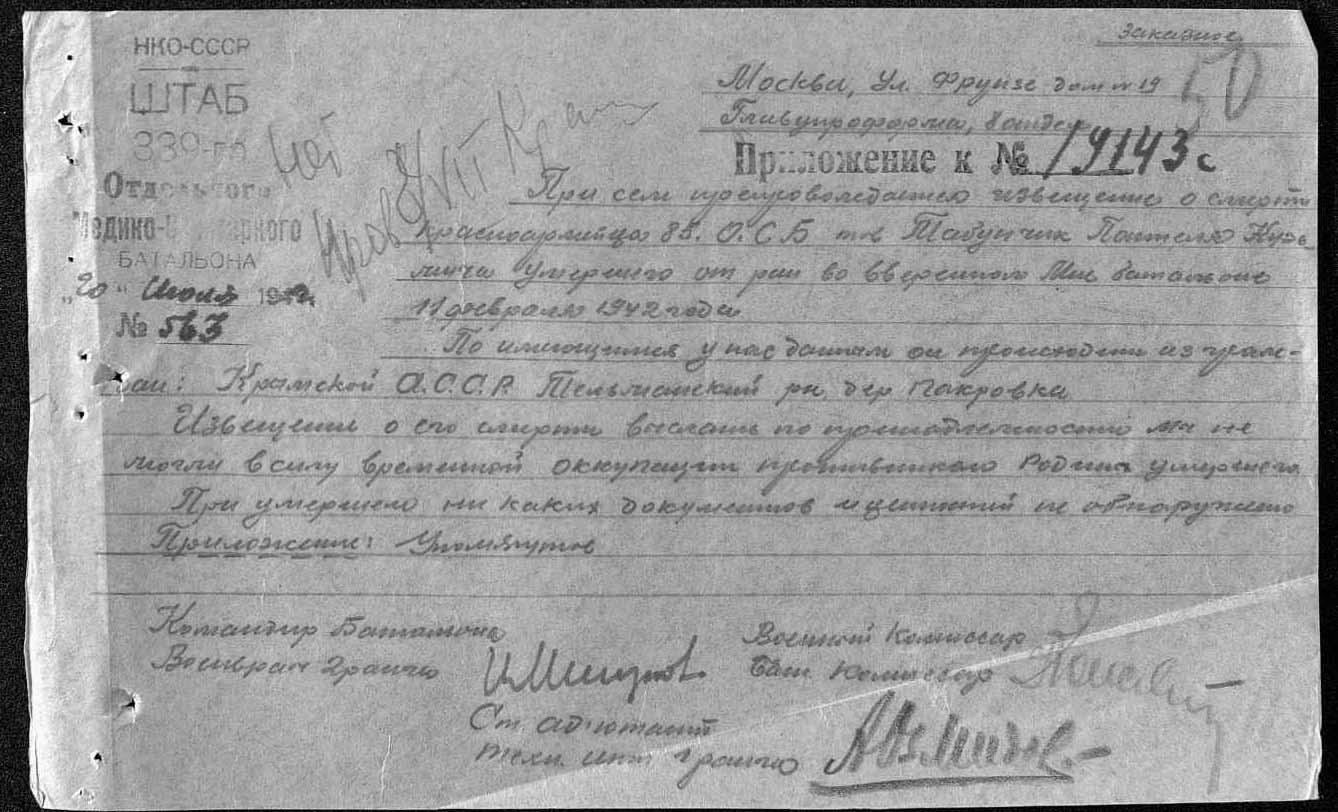 Заказное
НКО-СССР
ШТАБ
339-го
Отдельного
Медико-Санитарного
БАТАЛЬОНА
"20" Июля 1942 г.
№ 563
Москва, Ул. Фрунзе дом № 19
Главупроформа, 8 отдел
50
Приложение к № 19143 с
При сем препровождается извещение о смерти
Красноармейца 85. О.С.Б т-в Табунчик Пантелея Кузь-
мича умершего от ран во вверенном мне батальоне
11 февраля 1942 года
По имеющимся у нас данным он происходит из граж-
дан: Крымской А.С.С.Р. Тельманский рн, дер Покровка
Извещение о его смерти выслать по принадлежности мы не
могли в силу временной оккупации противником Родины умершего.
При умершем ни каких документов и ценностей не обнаружено
Приложение: Упомянутое
Командир Батальона
Военврач 2 ранга
Военный Комиссар
Бат. Комиссар
Ст. ад'ютант
техн. инт. 1 ранга